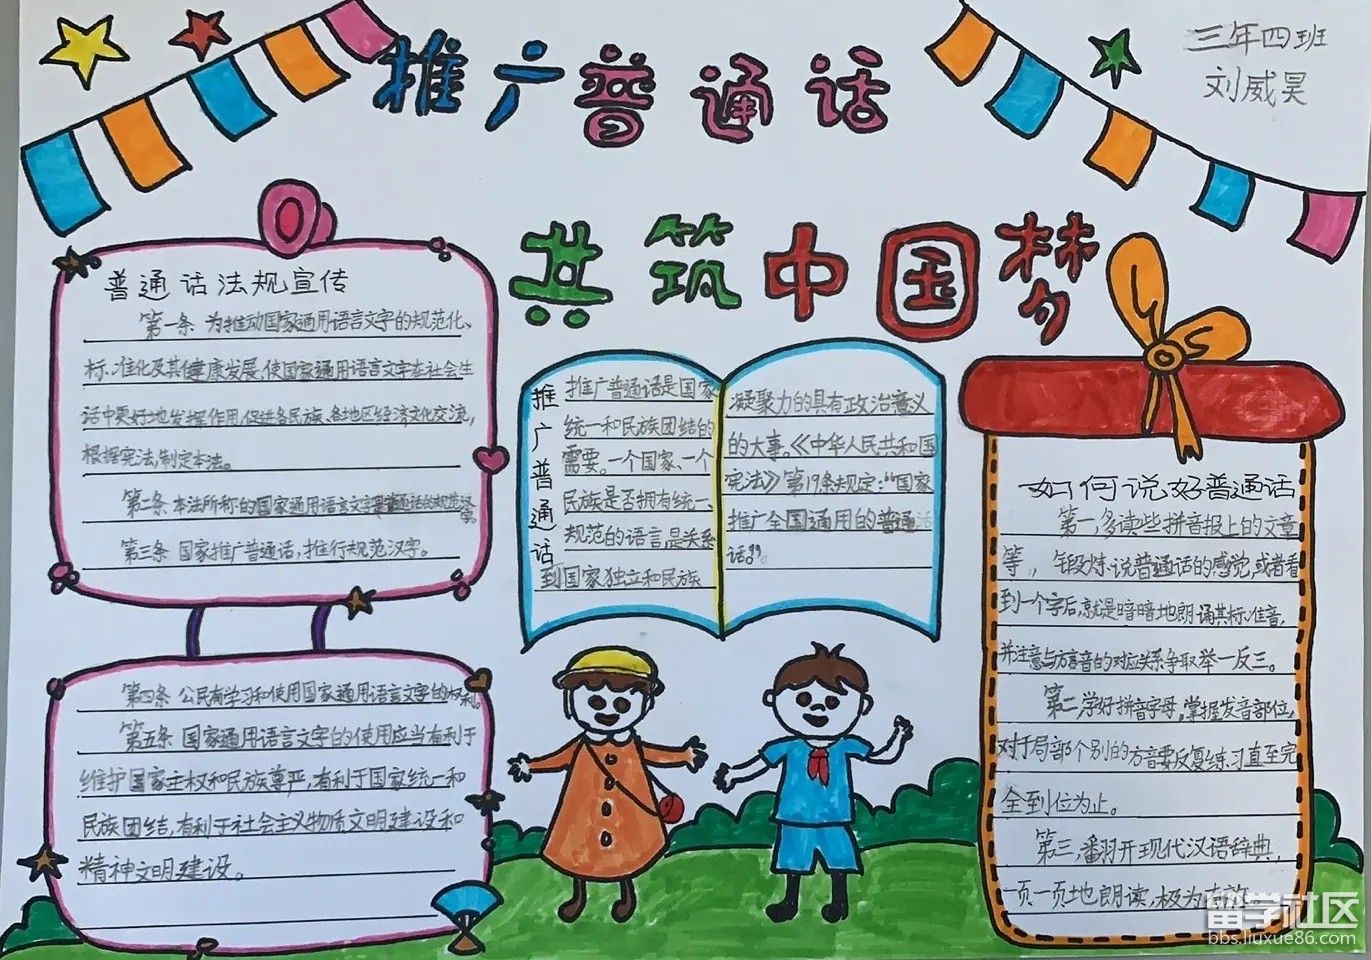 三年四班
刘威昊
推广普通话
共筑中国梦
普通话法规宣传
第一条 为推动国家通用语言文字的规范化、
标准化及其健康发展,使国家通用语言文字在社会生
活中更好地发挥作用,促进各民族、各地区经济文化交流,
根据宪法,制定本法。
第二条 本法所称的国家通用语言文字是普通话和规范
第三条 国家推广普通话,推行规范汉字。
第四条 公民有学习和使用国家通用语言文字的权利。
第五条 国家通用语言文字的使用应当有利于
维护国家主权和民族尊严,有利于国家统一和
民族团结,有利于社会主义物质文明建设和
精神文明建设。
推广普通话
推广普通话是国家
统一和民族团结的
需要。一个国家、一个
民族是否拥有统一、
规范的语言,是关系
到国家独立和民族
凝聚力的具有政治意义
的大事。《中华人民共和国
宪法》第19条规定:“国家
推广全国通用的普通
话。”
如何说好普通话
第一,多读些拼音报上的文章
等,锻炼说普通话的感觉,或者看
到一个字后,就是暗暗地朗诵其标准音,
并注意与方言音的对应关系争取举一反三。
第二,学好拼音字母,掌握发音部位,
对于局部个别的方音要反复练习直至完
全到位为止。
第三,翻开现代汉语辞典,
一页一页地朗读,极为有效。
留学社区
bbs.liuxue86.com